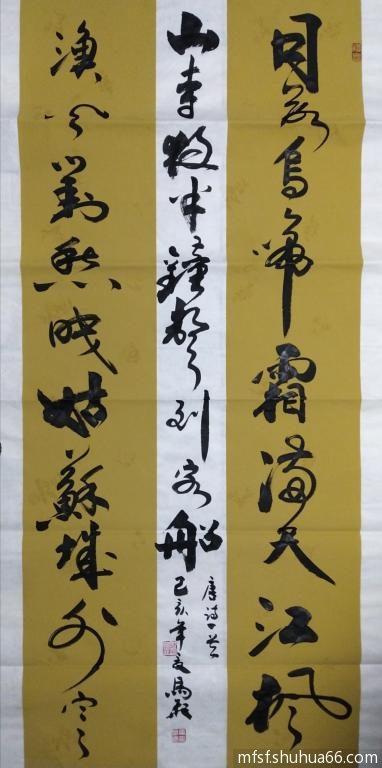 月落烏啼霜滿天江楓
漁火對愁眠姑蘇城外寒
山寺夜半鐘聲到客船
唐诗一首
己亥年夏馬
mfsfshuhua66.com